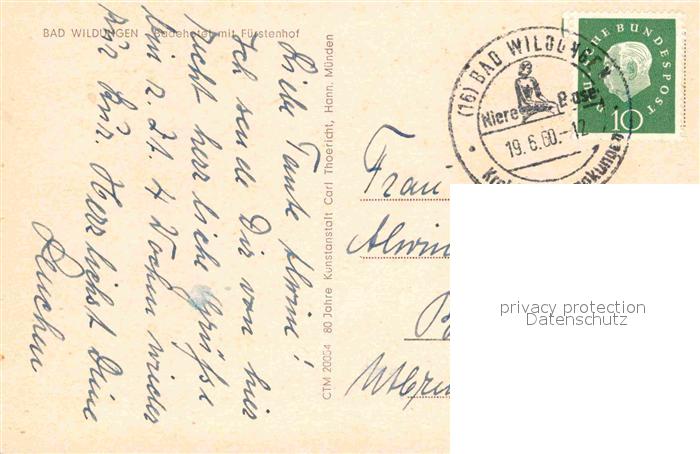 BAD WILDUNGEN Badehotel mit Fürstenhof
Liebe Tante Alwine!
Ich sende Dir von hier
recht herrliche Grüße
bin z. Zt. 4 Wochen wieder
zur Kur. Herzlichst Deine
Lenchen
CTM 20054 80 Jahre Kunstanstalt Carl Thoericht, Hann. Münden
(16) BAD WILDUNGEN
Niere Blase
19.6.60.-12
HE BUNDESPOST
10
Frau
Alwin
privacy protection
Datenschutz